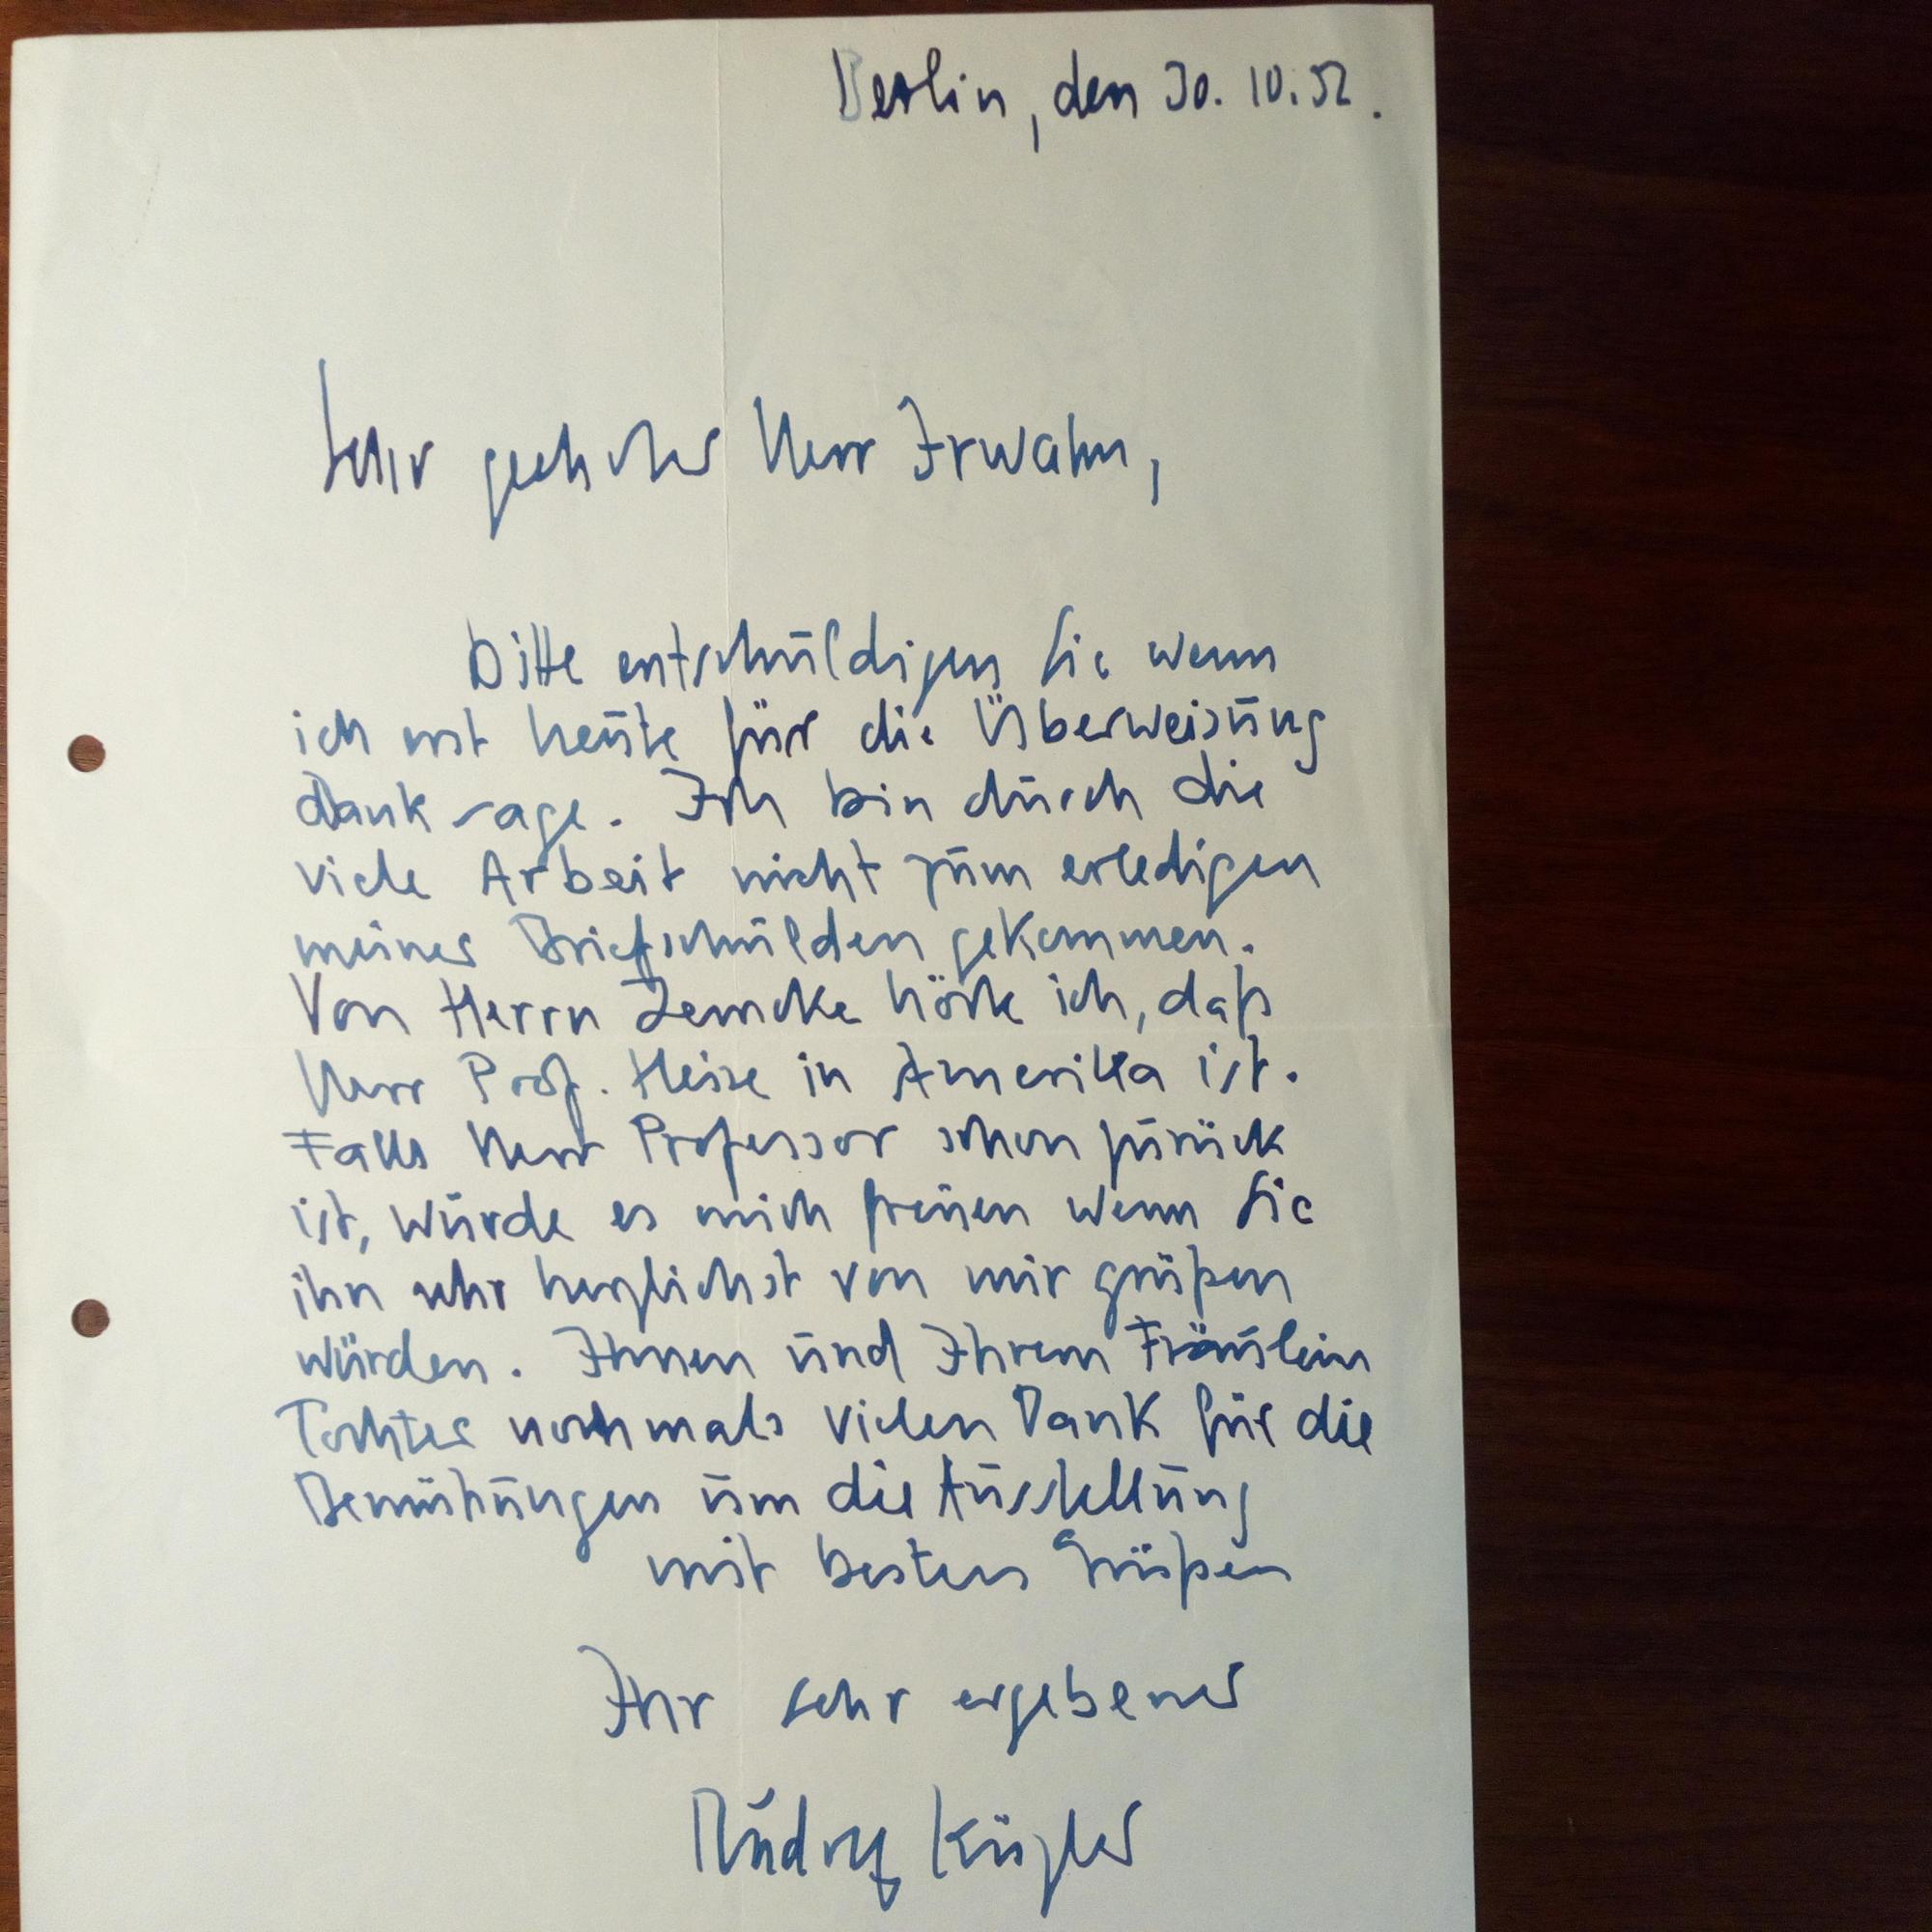 Berlin, den 30. 10. 52.
Sehr geehrter Herr Irwahn,
Bitte entschuldigen Sie wenn
ich erst heute für die Überweisung
dank sage. Ich bin durch die
viele Arbeit nicht zum erledigen
meiner Briefschulden gekommen.
Von Herrn Zemcke hörte ich, daß
Herr Prof. Heise in Amerika ist.
Falls Herr Professor schon zurück
ist, würde es mich freuen wenn Sie
ihn sehr herzlichst von mir grüßen
würden. Ihnen und Ihrem Fräulein
Tochter nochmals vielen Dank für die
Bemühungen um die Ausstellung
mit besten Grüßen
Ihr sehr ergebener
Rudolf Kügler